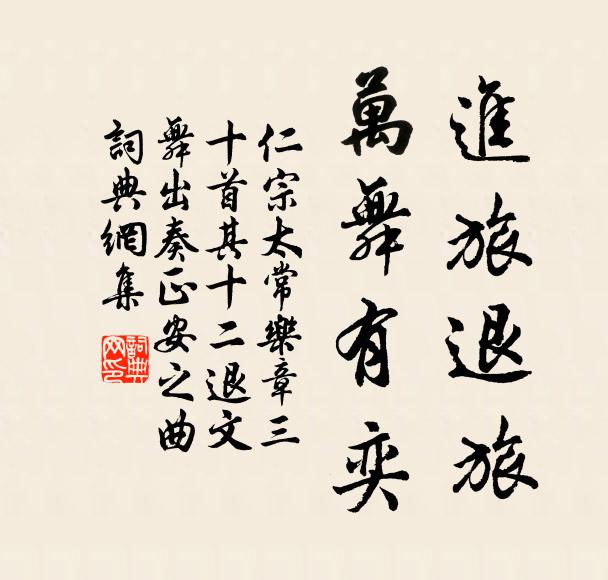 進旅退旅
萬舞有奕
仁宗太常樂章三
十首其十二退文
舞出奏正安之曲
詞典網集
詞典網印